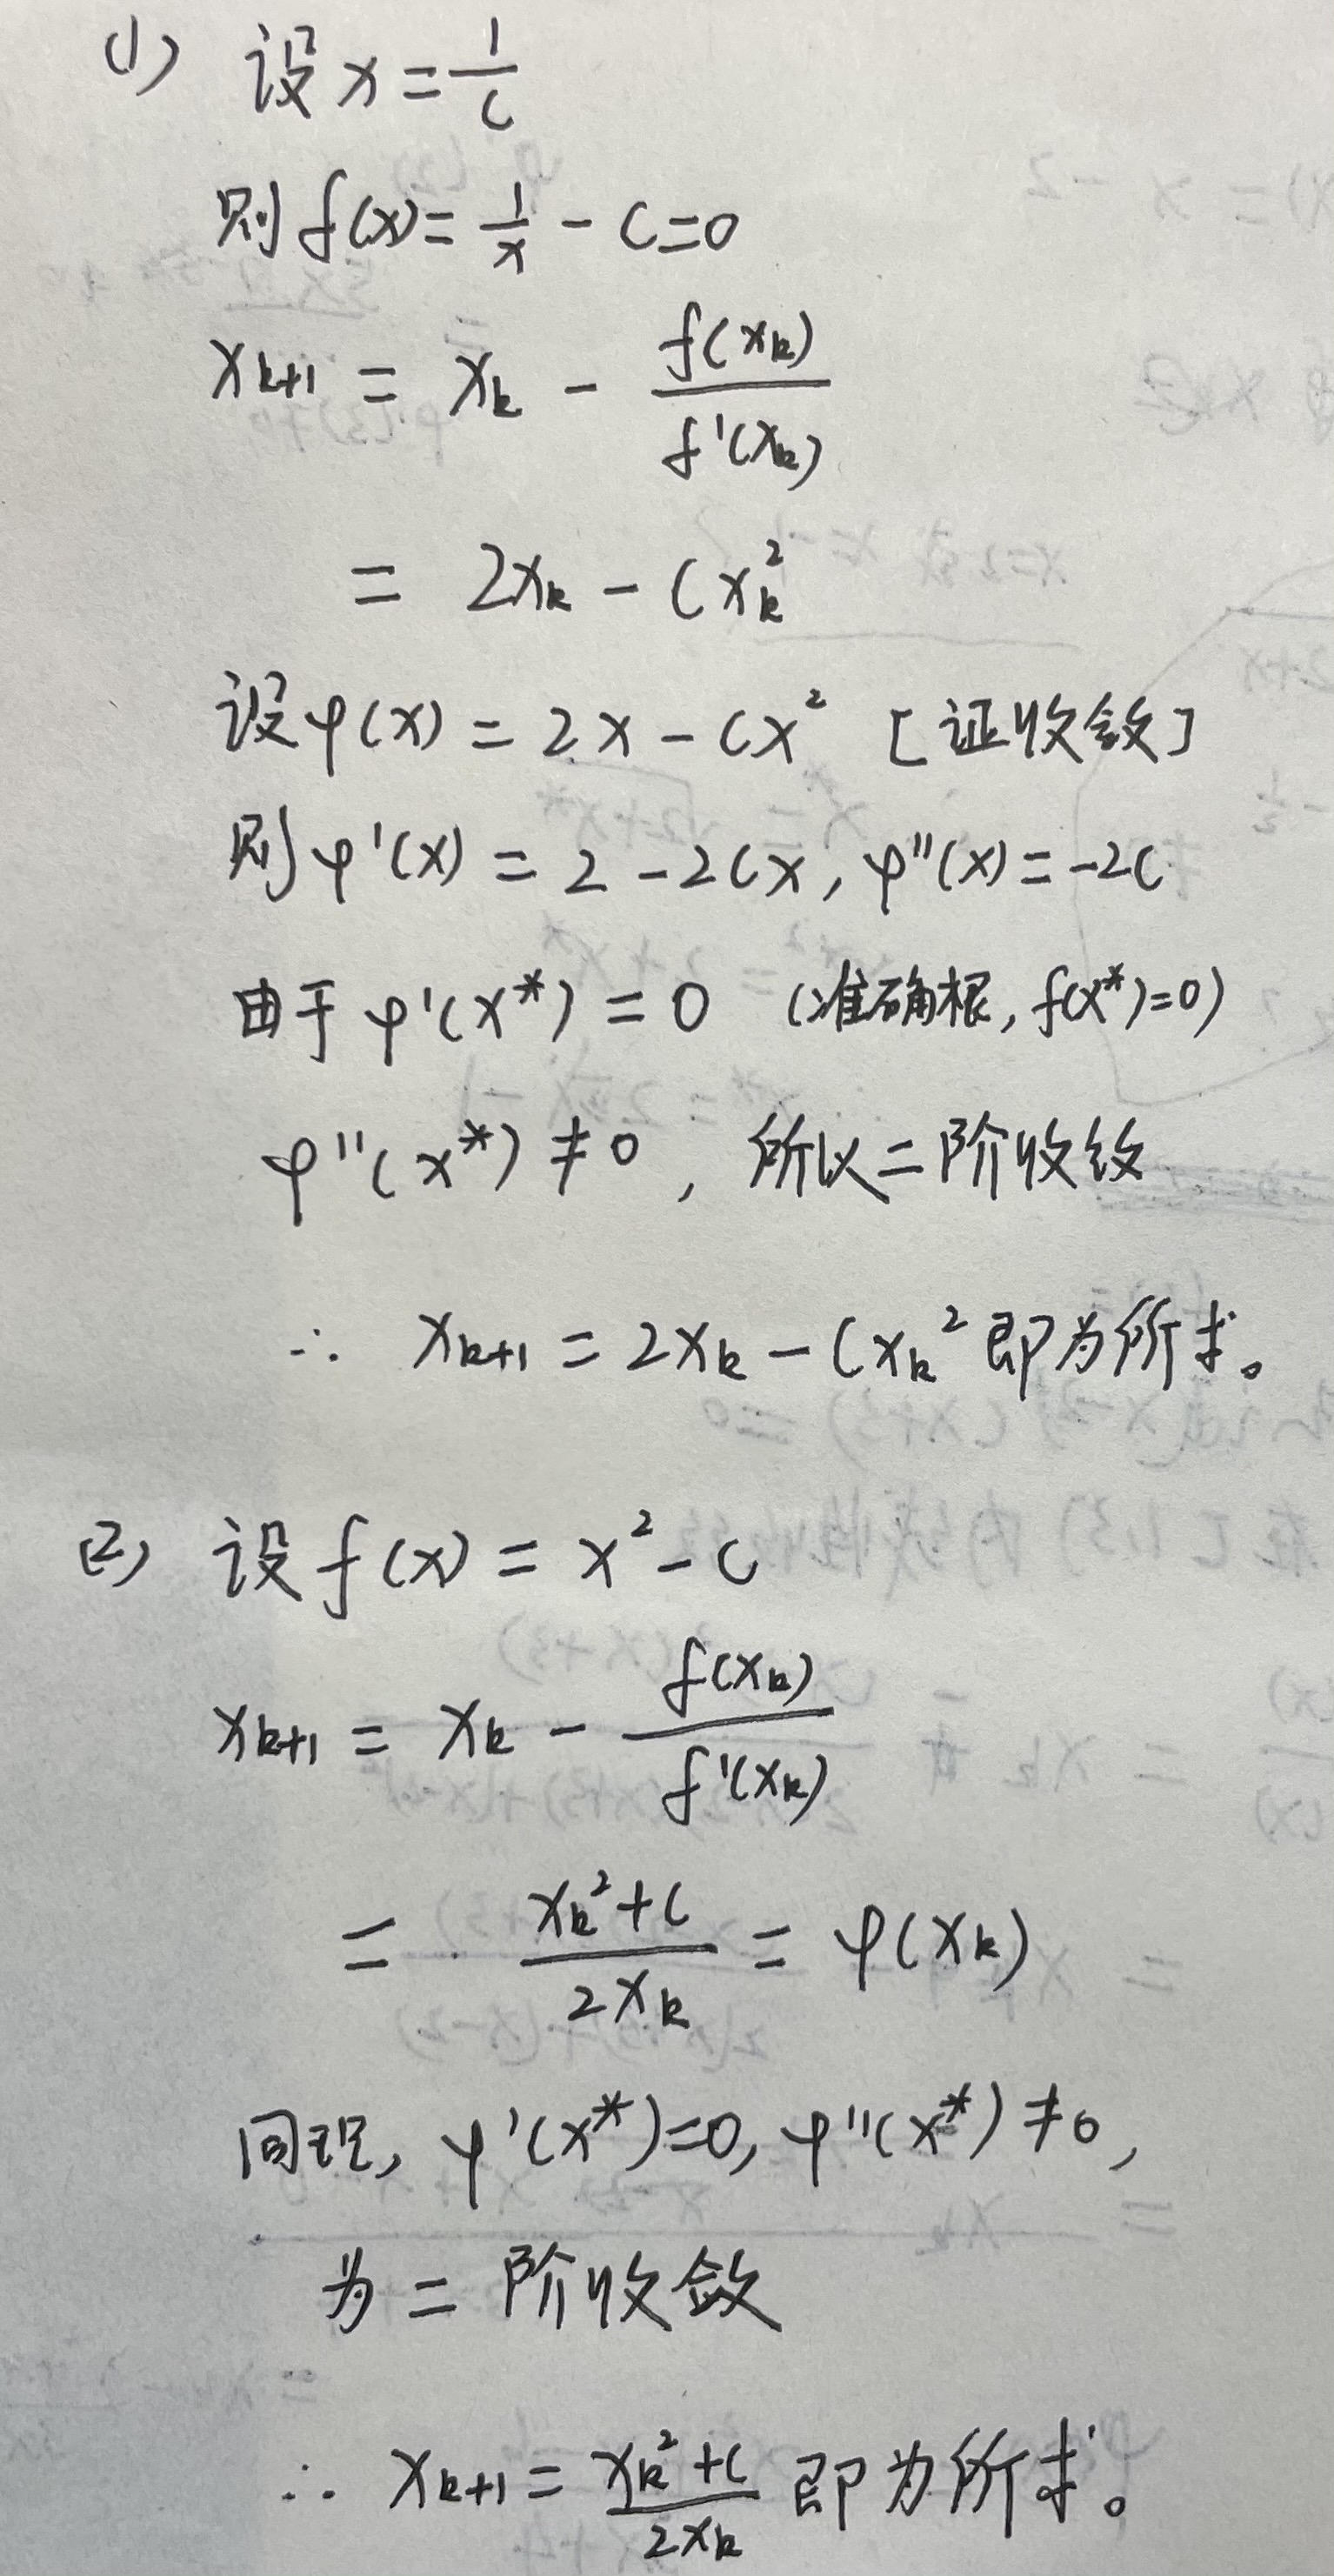 (1) 设 x = 1/c
则 f(x) = 1/x - c = 0
x_{k+1} = x_k - f(x_k)/f'(x_k)
= 2x_k - Cx_k^2
设 φ(x) = 2x - Cx^2 [证收敛]
则 φ'(x) = 2 - 2Cx, φ''(x) = -2C
由于 φ'(x*) = 0 (准确根, f(x*)=0)
φ''(x*) ≠ 0, 所以二阶收敛
∴ x_{k+1} = 2x_k - Cx_k^2 即为所求。
(2) 设 f(x) = x^2 - C
x_{k+1} = x_k - f(x_k)/f'(x_k)
= (x_k^2 + C)/(2x_k) = φ(x_k)
同理, φ'(x*)=0, φ''(x*) ≠ 0,
为二阶收敛
∴ x_{k+1} = (x_k^2 + C)/(2x_k) 即为所求。